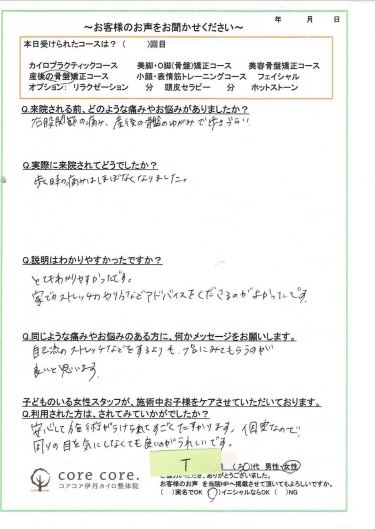 年　　月　　日
～お客様のお声をお聞かせください～
本日受けられたコースは？（　　）回目
カイロプラクティックコース　美脚・O脚（骨盤）矯正コース　美容骨盤矯正コース
産後の骨盤矯正コース　小顔・表情筋トレーニングコース　フェイシャル
オプション： リラクゼーション　分　頭皮セラピー　分　ホットストーン
Q.来院される前、どのような痛みやお悩みがありましたか？
右股関節の痛み、産後の骨盤のゆがみで歩きづらい
Q.実際に来院されてどうでしたか？
歩く時の痛みはほぼなくなりました。
Q.説明はわかりやすかったですか？
とてもわかりやすかったです。
家でのストレッチのやり方などアドバイスをくださるのがよかったです。
Q.同じような痛みやお悩みのある方に、何かメッセージをお願いします。
自己流のストレッチなどをするよりも、プロにみてもらう方が
良いと思います。
子どものいる女性スタッフが、施術中お子様をケアさせていただいております。
Q.利用された方は、されてみていかがでしたか？
安心して施術がうけられてすごくたすかります。個室なので
周りの目を気にしなくても良いがうれしいです。
T
（30）代 男性・女性
ご協力いただき、ありがとうございました。
お客様のお声を当院HPへ掲載させて頂いてもよろしいですか？
（　）実名でOK（○）イニシャルならOK（　）NG
core core.
コアコア伊丹カイロ整体院